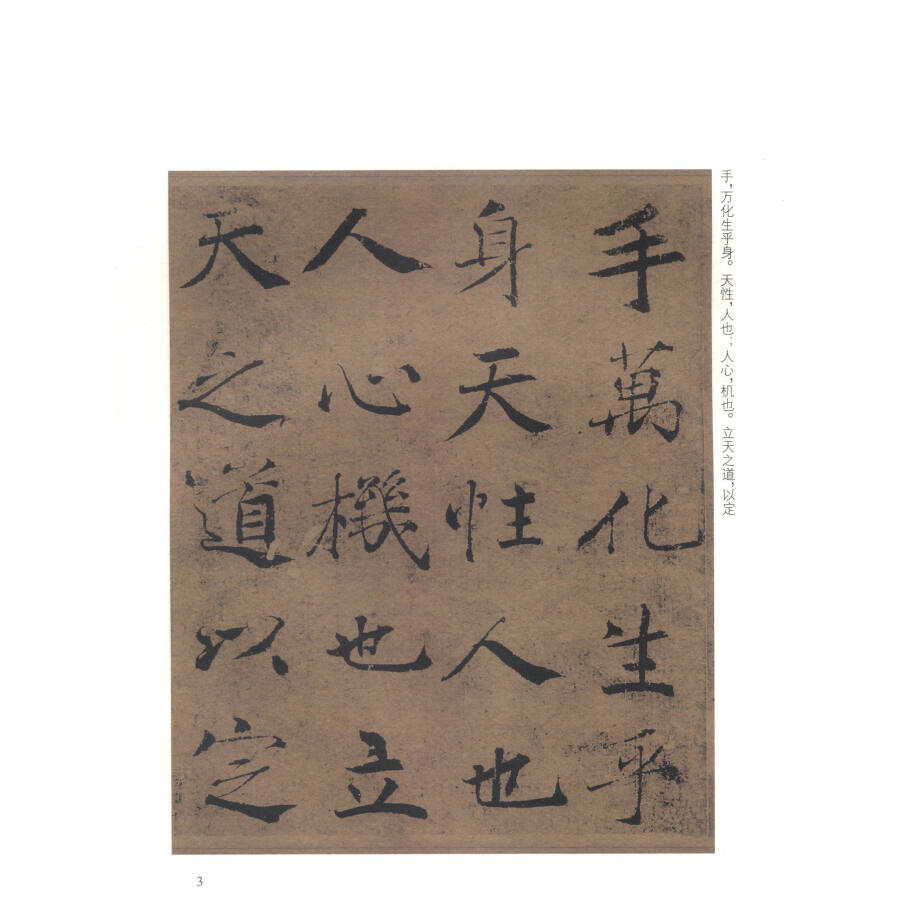 手萬化生乎
身天性人也
人心機也立
天之道以定
手，万化生乎身。天性，人也；人心，机也。立天之道，以定
3